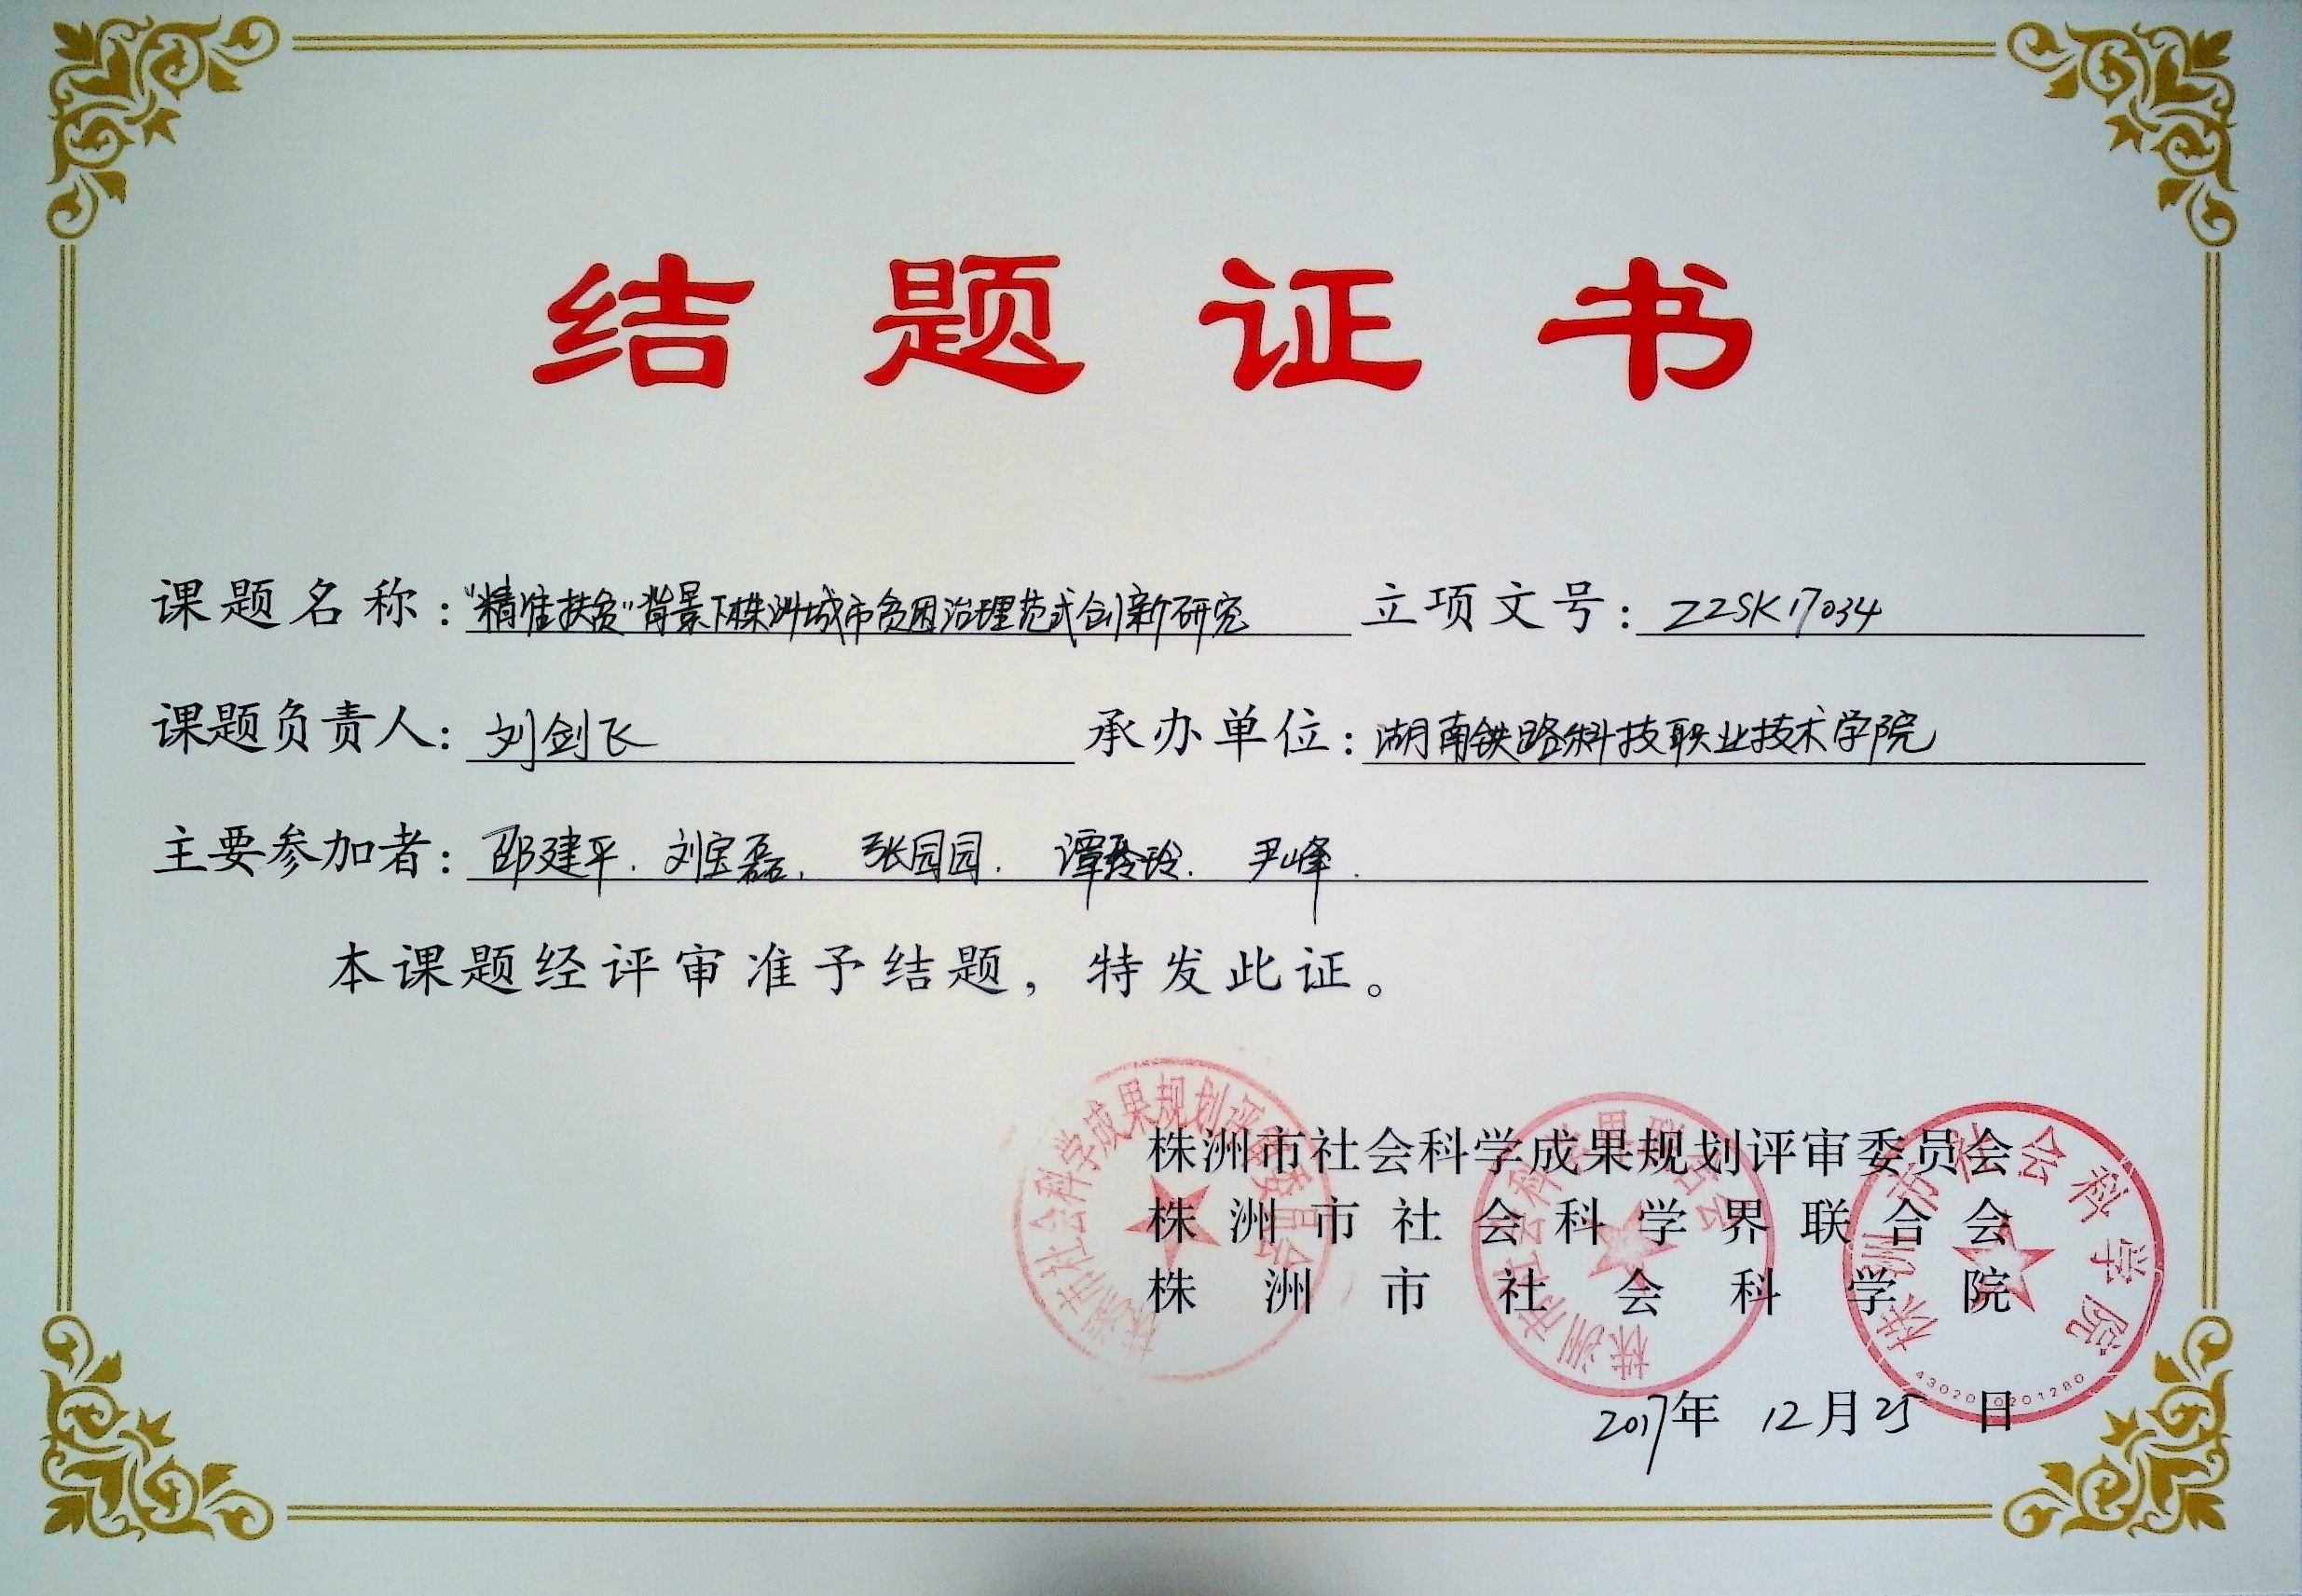 结题证书
课题名称：“精准扶贫”背景下株洲城市贫困治理范式创新研究 立项文号：ZZSK17034
课题负责人：刘剑飞 承办单位：湖南铁路科技职业技术学院
主要参加者：邵建平、刘宝磊、张园园、谭玲玲、尹峰.
本课题经评审准予结题，特发此证。
株洲市社会科学成果规划评审委员会
株洲市社会科学界联合会
株洲市社会科学院
2017年 12月25日
株洲市社会科学成果规划评审委员会
株洲市社会科学界联合会
株洲市社会科学院